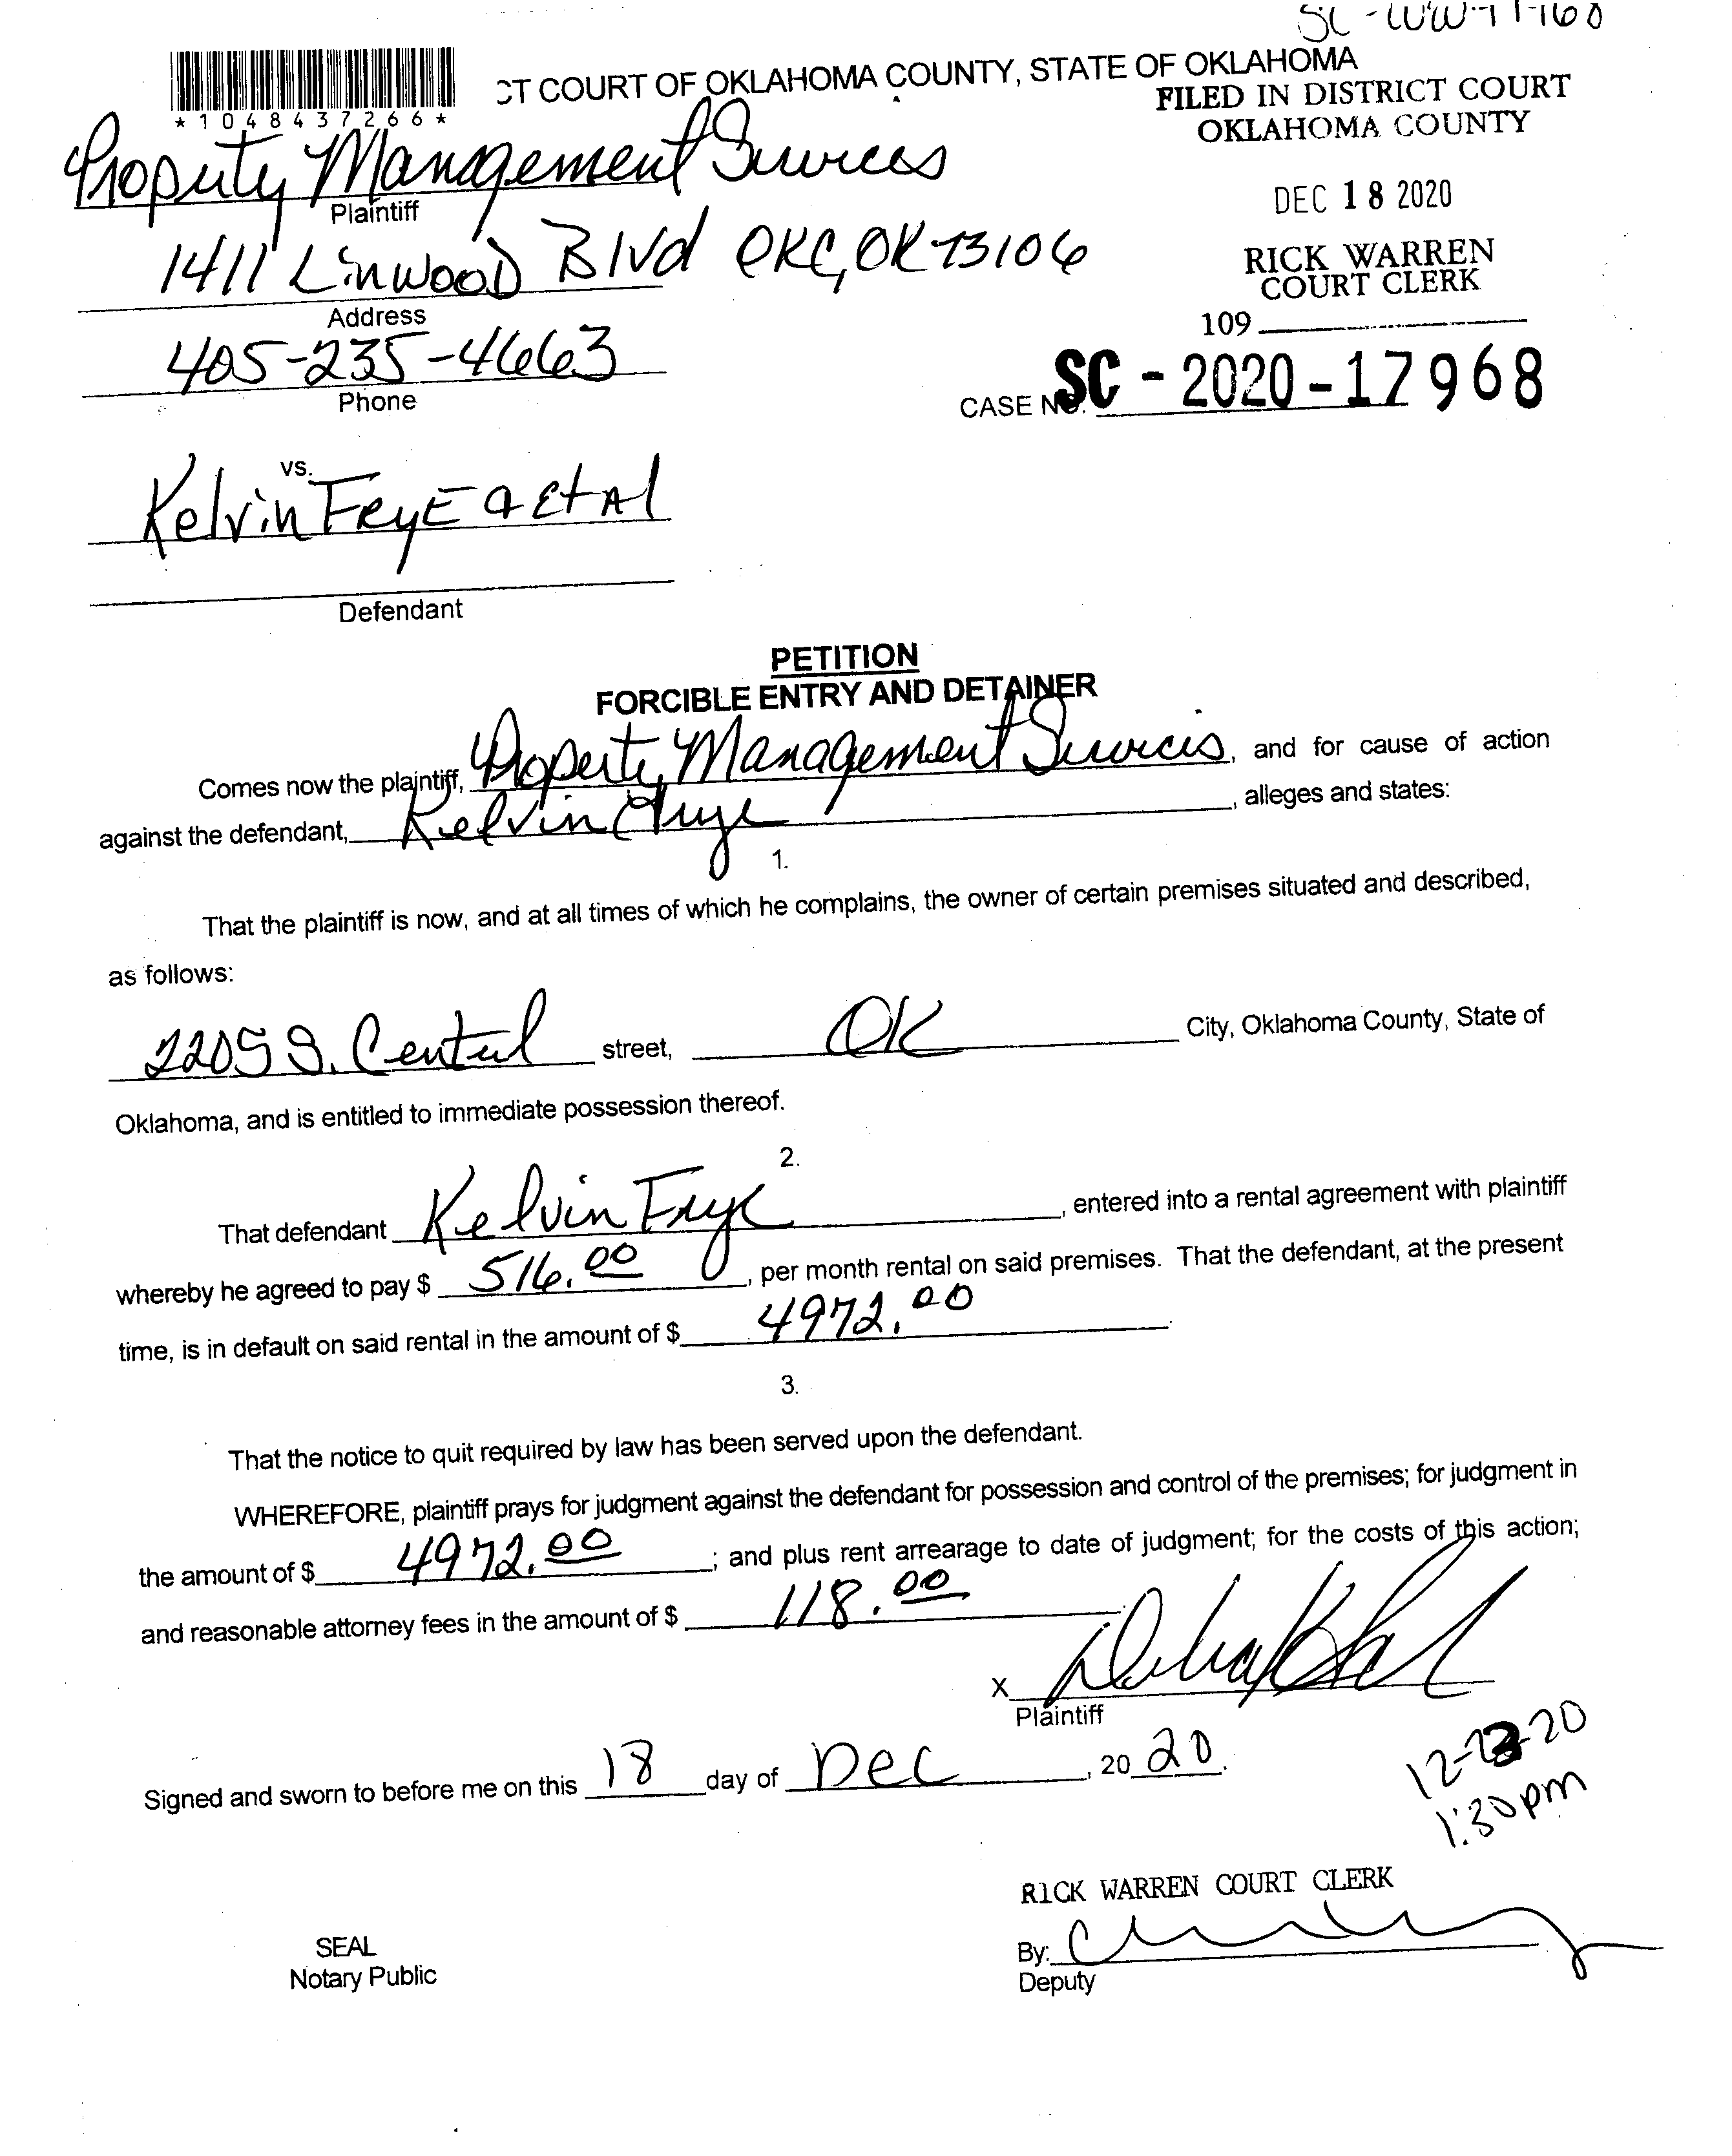 *1048437266*
CT COURT OF OKLAHOMA COUNTY, STATE OF OKLAHOMA
FILED IN DISTRICT COURT
OKLAHOMA COUNTY
Property Management Services
Plaintiff
DEC 18 2020
1411 Linwood Blvd OKC, OK 73106
Address
RICK WARREN
COURT CLERK
405-235-4663
Phone
109
CASE NO. SC - 2020 - 17968
vs.
Kelvin Frye & Et Al
Defendant
PETITION
FORCIBLE ENTRY AND DETAINER
Comes now the plaintiff, Property Management Services, and for cause of action
against the defendant, Kelvin Frye, alleges and states:
1.
That the plaintiff is now, and at all times of which he complains, the owner of certain premises situated and described,
as follows:
2205 S. Central street, OK City, Oklahoma County, State of
Oklahoma, and is entitled to immediate possession thereof.
2.
That defendant Kelvin Frye, entered into a rental agreement with plaintiff
whereby he agreed to pay $ 516.00, per month rental on said premises. That the defendant, at the present
time, is in default on said rental in the amount of $ 4972.00.
3.
That the notice to quit required by law has been served upon the defendant.
WHEREFORE, plaintiff prays for judgment against the defendant for possession and control of the premises; for judgment in
the amount of $ 4972.00; and plus rent arrearage to date of judgment; for the costs of this action;
and reasonable attorney fees in the amount of $ 118.00.
X
Plaintiff
Signed and sworn to before me on this 18 day of Dec, 20 20.
1:30pm
RICK WARREN COURT CLERK
By:
Deputy
SEAL
Notary Public